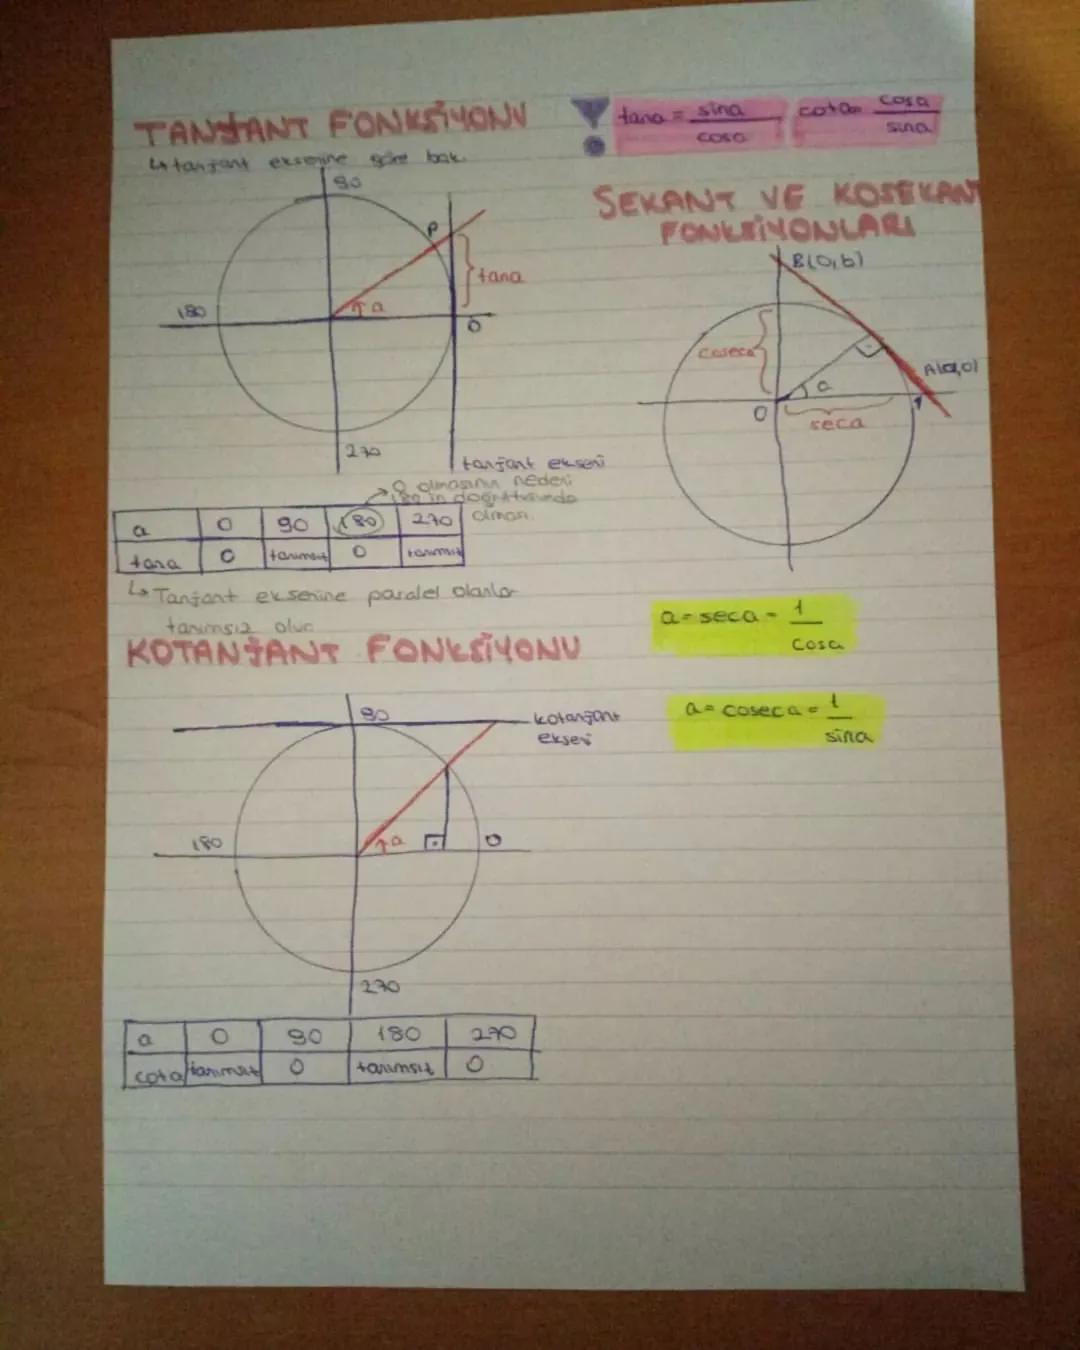 TANJANT FONKSİYONU
↳ tanjant eksenine göre bak.
90
P
tana
a
180
0
270
tanjant ekseni
0 olmasının nedeni
180 in doğrultusunda
olması.
a 0 90 180 270
tana 0 tanımsız 0 tanımsız
↳ Tanjant eksenine paralel olanlar
tanımsız olur
KOTANJANT FONKSİYONU
90
kotanjant
ekseni
180
a
0
270
a 0 90 180 270
cota tanımsız 0 tanımsız 0
! tana = sina / cosa
cota= cosa / sina
SEKANT VE KOSEKANT
FONKSİYONLARI
B(0,b)
coseca
A(a,0)
a
0
seca
1
a = seca = 1 / cosa
a = coseca = 1 / sina